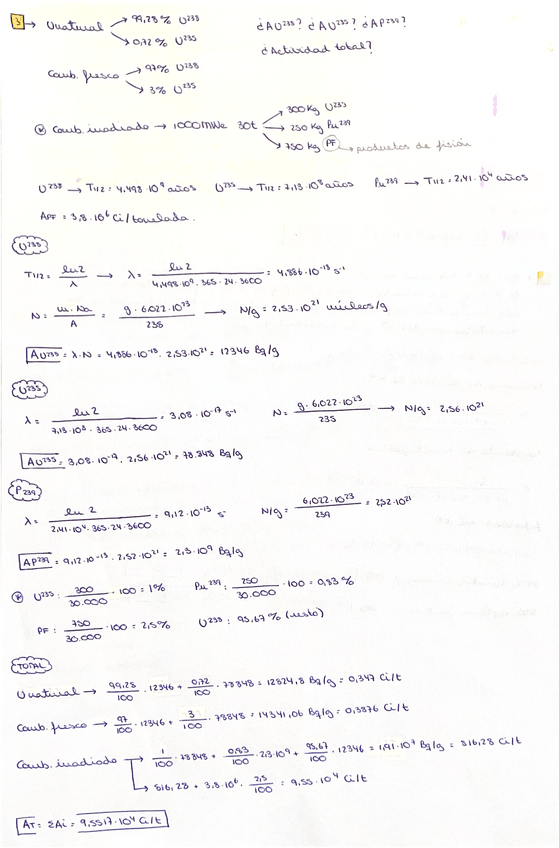 3 → Unatural → 99,28% U²³⁸ ¿AU²³⁸? ¿AU²³⁵? ¿AP²³⁹?
→ 0,72% U²³⁵ ¿Actividad total?
Comb. fresco → 97% U²³⁸
→ 3% U²³⁵
* Comb. irradiado → 1000 MWe 30t → 300 Kg U²³⁵
→ 250 Kg Pu²³⁹
→ 750 Kg PF → productos de fisión
U²³⁸ → T1/2 = 4,498·10⁹ años U²³⁵ → T1/2 = 7,13·10⁸ años Pu²³⁹ → T1/2 = 2,41·10⁴ años
APF = 3,8·10⁶ Ci/tonelada.
U²³⁸
T1/2 = ln2/λ → λ = ln2/4,498·10⁹·365·24·3600 = 4,886·10⁻¹⁸ s⁻¹
N = m·Na/A = g·6,022·10²³/238 → N/g = 2,53·10²¹ núcleos/g
AU²³⁸ = λ·N = 4,886·10⁻¹⁸·2,53·10²¹ = 12346 Bq/g
U²³⁵
λ = ln2/7,13·10⁸·365·24·3600 = 3,08·10⁻¹⁷ s⁻¹ N = g·6,022·10²³/235 → N/g = 2,56·10²¹
AU²³⁵ = 3,08·10⁻¹⁷·2,56·10²¹ = 78.848 Bq/g
P239
λ = ln 2/2,41·10⁴·365·24·3600 = 9,12·10⁻¹³ s⁻ N/g = 6,022·10²³/239 = 2,52·10²¹
AP²³⁹ = 9,12·10⁻¹³·2,52·10²¹ = 2,3·10⁹ Bq/g
* U²³⁵: 300/30.000 · 100 = 1% Pu²³⁹: 250/30.000 · 100 = 0,83%
PF: 750/30.000 · 100 = 2,5% U²³⁸: 95,67% (resto)
TOTAL
Unatural → 99,28/100 · 12346 + 0,72/100 · 78848 = 12824,8 Bq/g = 0,347 Ci/t
Comb. fresco → 97/100 · 12346 + 3/100 · 78848 = 14341,06 Bq/g = 0,3876 Ci/t
Comb. irradiado → 1/100 · 78848 + 0,83/100 · 2,3·10⁹ + 95,67/100 · 12346 = 1,91·10⁷ Bq/g = 516,28 Ci/t
→ 516,28 + 3,8·10⁶ · 2,5/100 = 9,55·10⁴ Ci/t
AT = ΣAi = 9,5517·10⁴ Ci/t